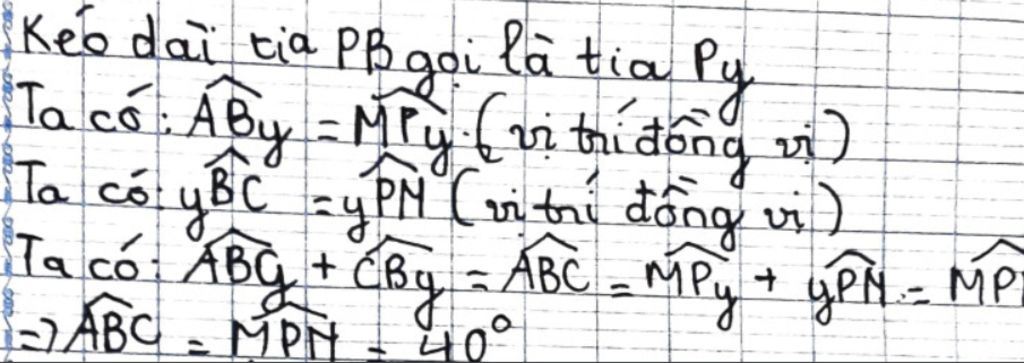 Kéo dài tia PB gọi là tia Py
Ta có: ABy = MPy (vị trí đồng vị)
Ta có yBC = yPN (vị trí đồng vị)
Ta có: ABy + CBy = ABC = MPy + yPN = MP
=> ABC = MPN = 40°